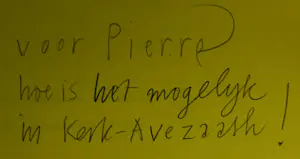 voor Pierre
hoe is het mogelijk
in Kerk-Avezaath!